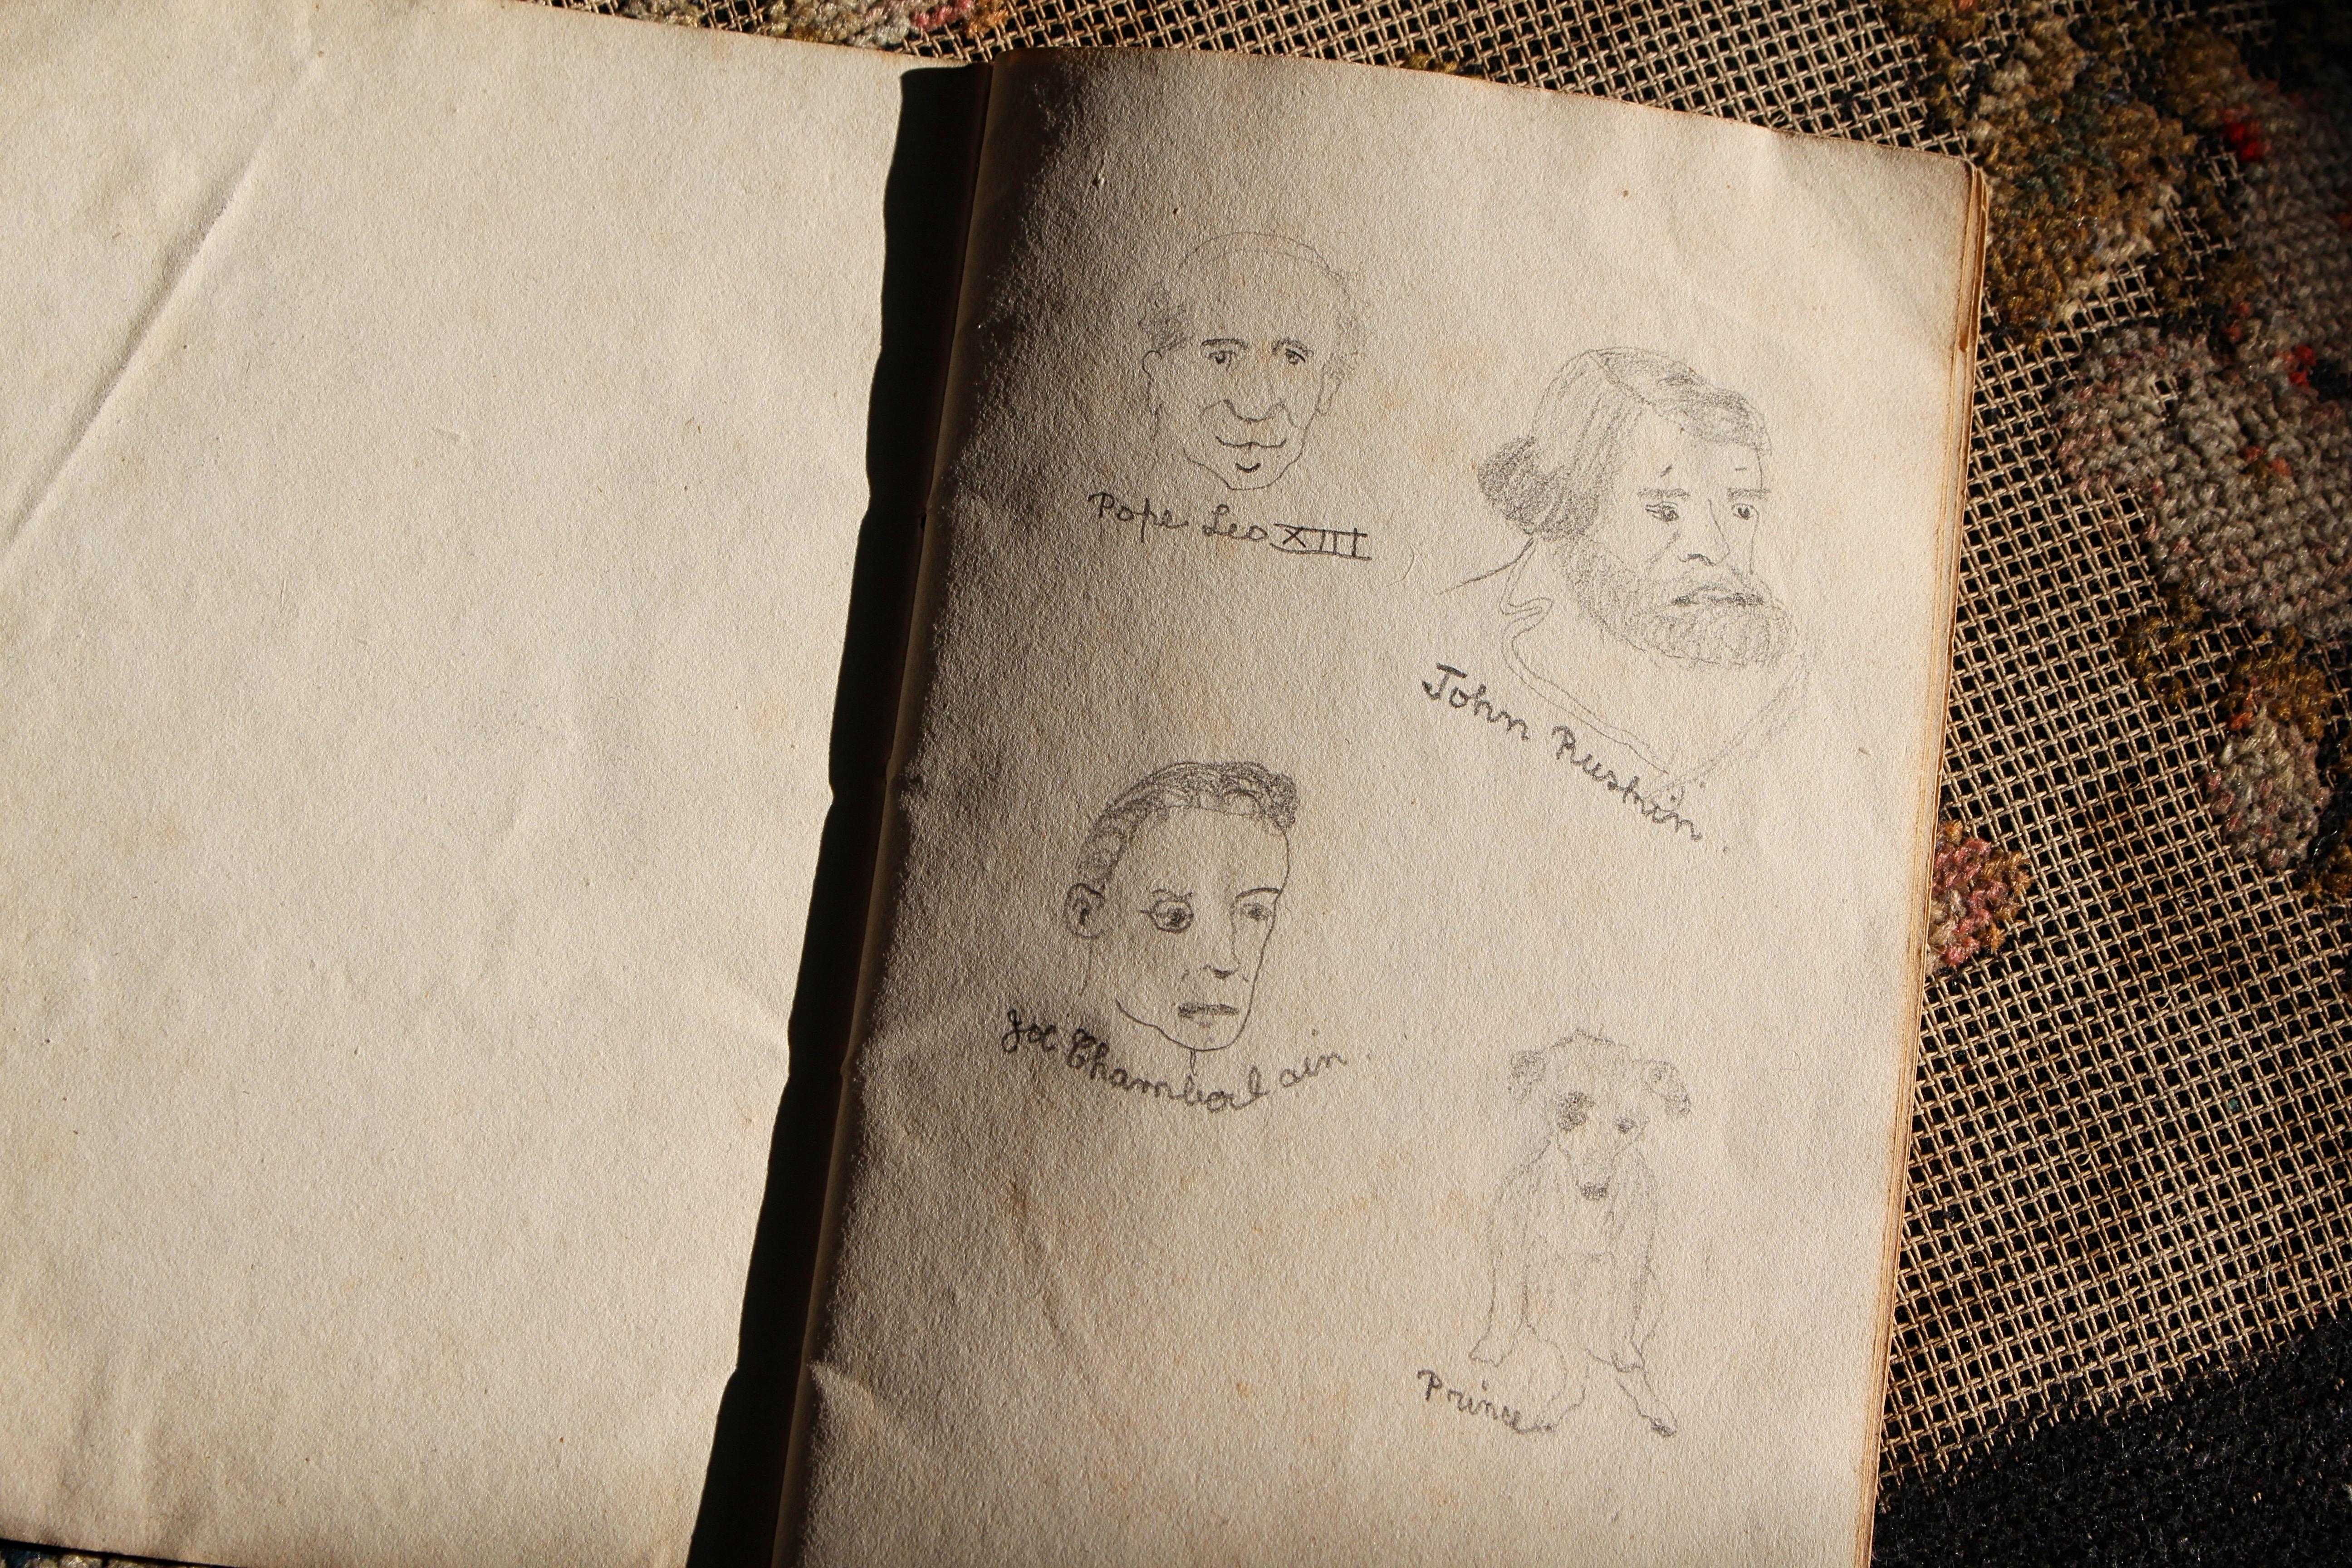 Pope Leo XIII
John Ruskin.
Joe Chamberlain.
Prince.